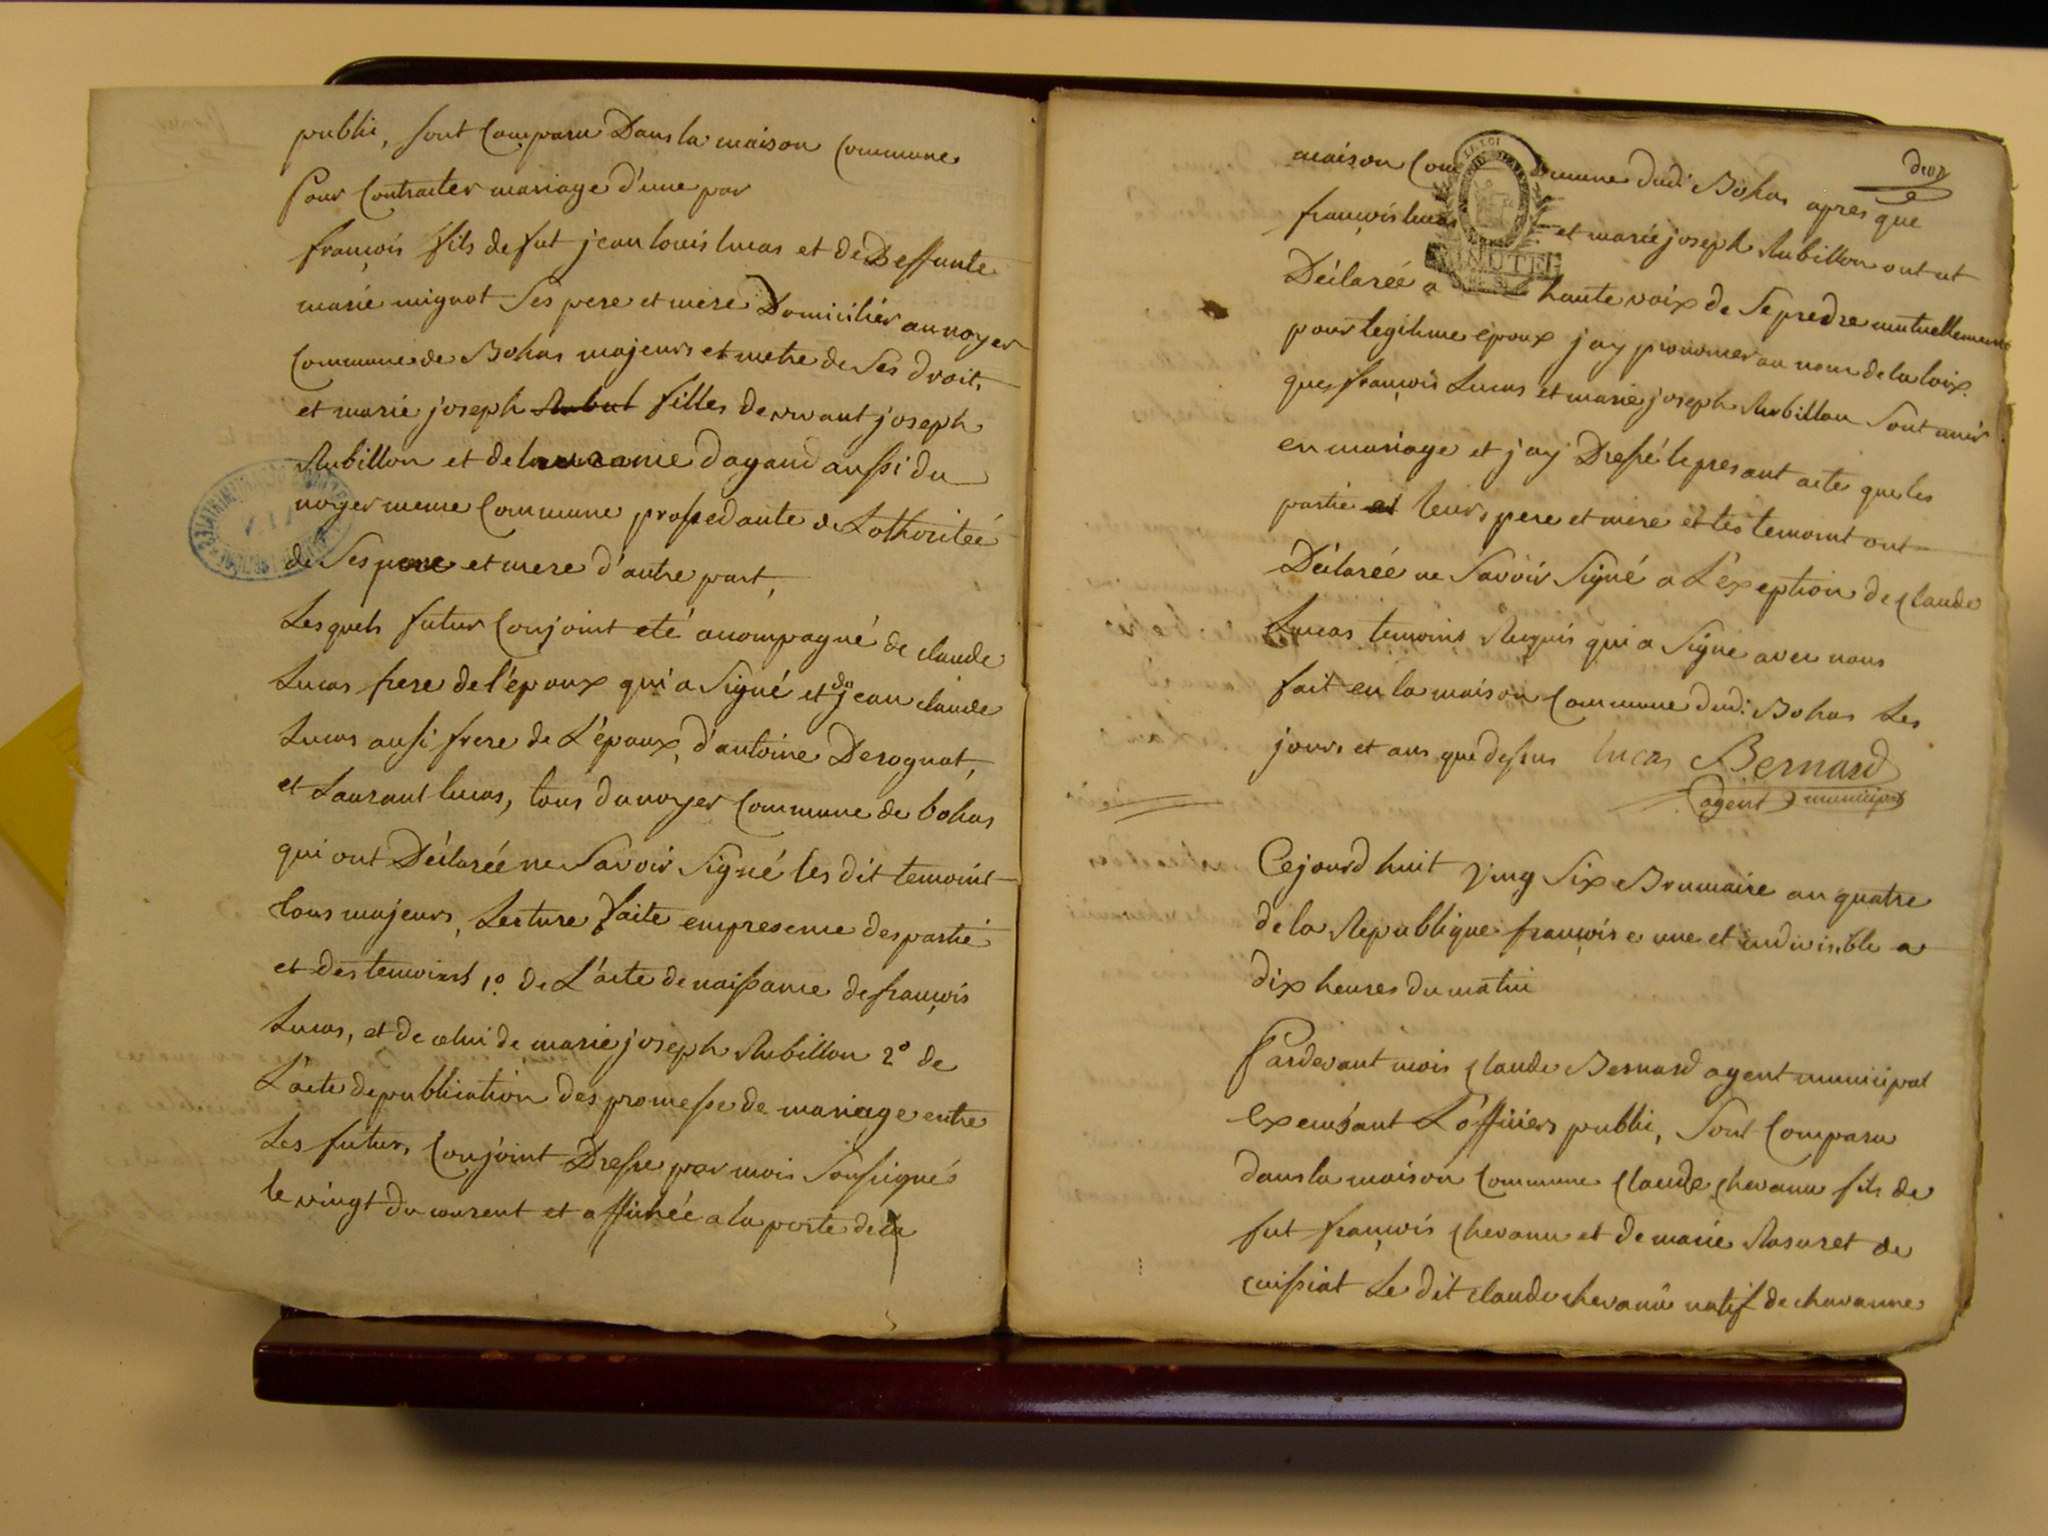 publié, sont Comparu Dans la maison Commune
Pour Contracter mariage d'une par
françois fils de fut jean louis lucas et de Deffunte
marie mignot Ses pere et mere Domicilier au noyer
Commune de Bohas majeurs et metre de Ses droit,
et marie joseph filles de vivant joseph
Rubillon et de dagand aussi du
noyer meme Commune de Lothoritée
de Ses pere et mere d'autre part,
Lesquels futur Conjoint eté acompagné de claude
Lucas frere de l'époux qui a Signé et de jean claude
Lucas ausi frere de L'époux, d'antoine Desognat,
et Laurant lucas, tous du noyer Commune de bohas
qui ont Déclarée ne Savoir Signé les dit temoint
tous majeurs, Lecture faite en presence des partie
et des temoins 1º de L'acte de naissance de françois
Lucas, et de celui de marie joseph Rubillon 2º de
L'acte de publication des promesse de mariage entre
Les futurs Conjoint Dresse par mois Soussignés
le vingt du courent et affichée a la porte de la
deux
maison Commune dud: Bohas apres que
françois lucas et marie joseph Rubillon ont ut
Déclarée a haute voix de Se predre mutuellement
pour legitime epoux jay prononcer au nom de la loix
ques françois Lucas et marie joseph Rubillon Sont unir
en mariage et jay Dressé le presant acte que les
partie et leurs pere et mere et les temoint ont
Déclarée ne Savoir Signé a L'exeption de claude
Lucas temoins Requis qui a Signé avec nous
fait en la maison Commune dud: Bohas Les
jours et ans que dessus lucas Bernard
agent municipal
Cejourd huit Ving Six Brumaire an quatre
de la Republlique françoise une et indivisible a
dix heures du matin
Pardevant mois Claude Bernard agent municipal
exercant L'officiers publié, Sont Comparu
dans la maison Commune Claude Chevanu fils de
fut françois Chevanu et de marie Rasuret de
cuissiat Le dit claude chevanu natif de chavanne